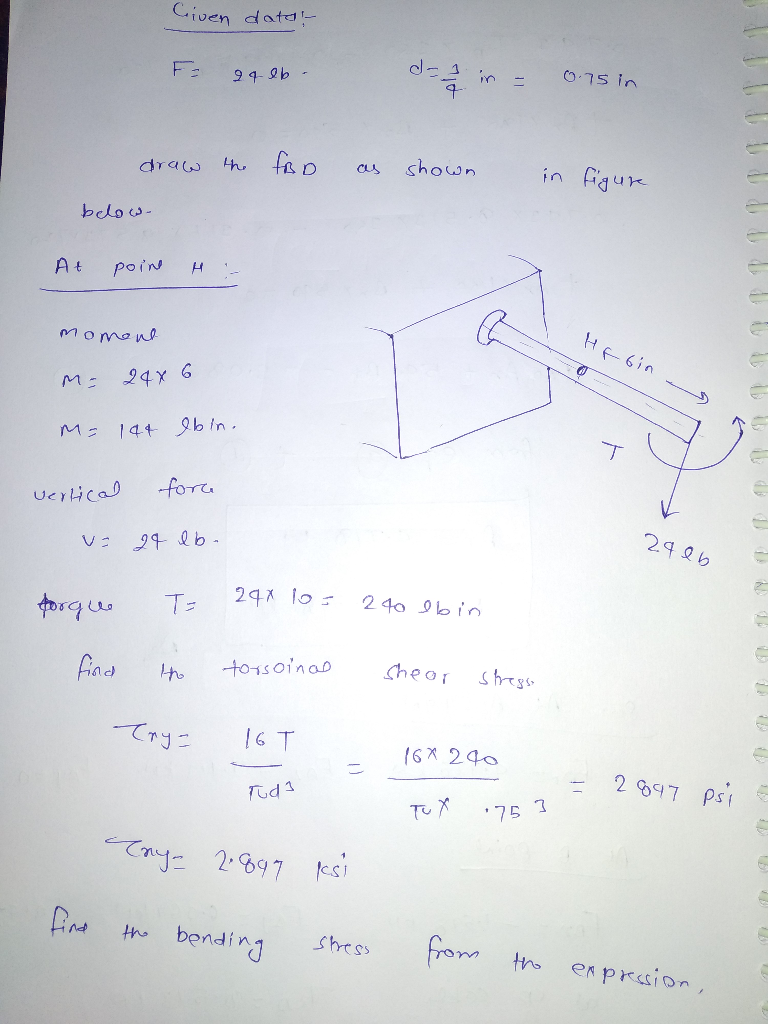 Given data:-
F = 24 lb. d = 3/4 in = 0.75 in
draw the FBD as shown in figure
below.
At point H :-
moment
M = 24 x 6
M = 144 lb in.
H 6 in
T
vertical force
V = 24 lb.
24 lb
torque T = 24 x 10 = 240 lb in
find the torsoinal shear stress
τxy = 16 T / πd3 = 16 x 240 / π x .75 3 = 2897 psi
τxy = 2.897 ksi
find the bending stress from the expression,